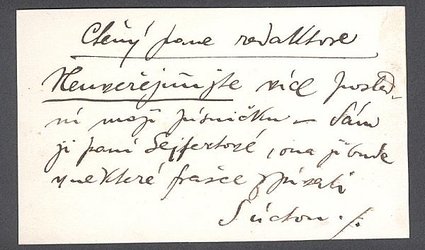 Ctěný pane redaktore
Neuveřejnujte více posled-
ní moji písničku – Dám
ji paní Sejfertové, ona ji bude
v některé frašce zpívati